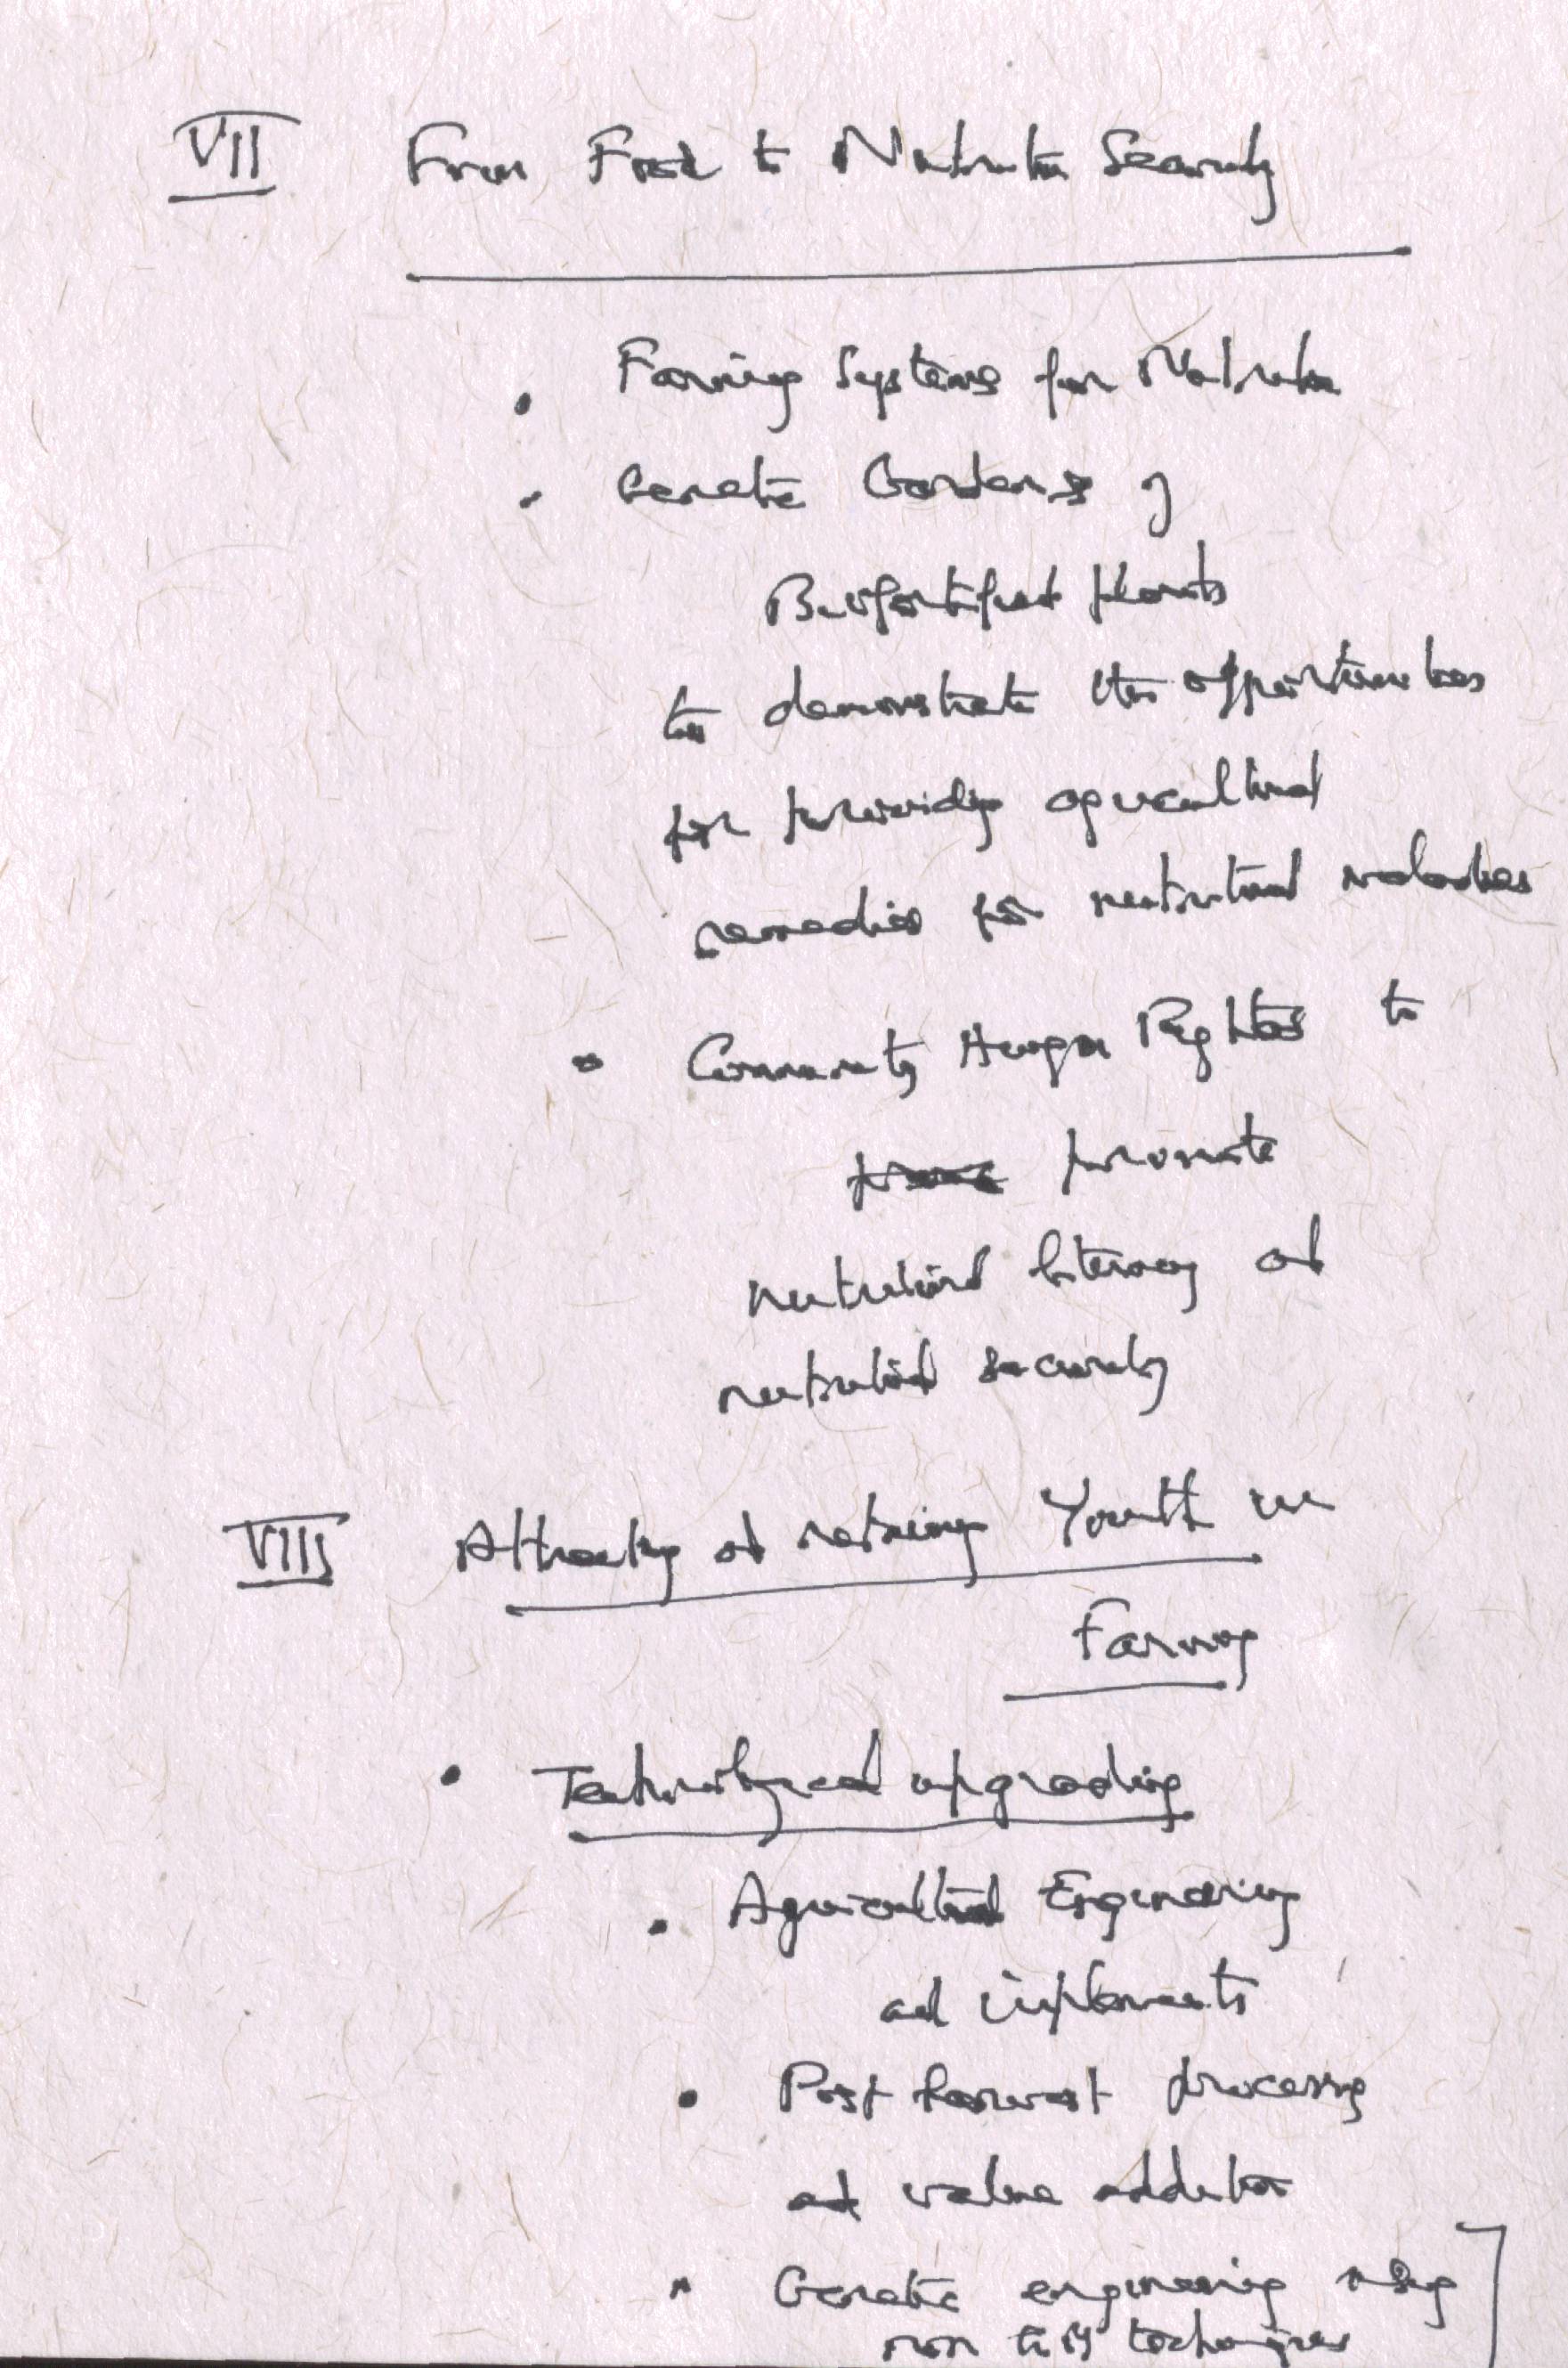 VII From Food to Nutrition Security
• Farming Systems for Nutrition
• Genetic Gardens of
Biofortified plants
to demonstrate the opportunities
for providing agricultural
remedies for nutritional maladies
• Community Hunger Fighters to
promote
nutritional literacy and
nutritional security
VIII Attracting and retaining Youth in
Farming
• Technological upgrading
• Agricultural Engineering
and implements
• Post harvest processing
and value addition
• Genetic engineering using
non GM techniques